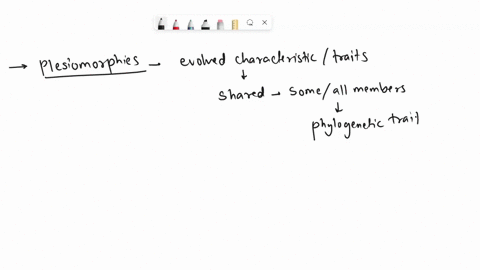 → Plesiomorphies – evolved characteristic / traits
↓
shared → some/all members
↓
phylogenetic trait